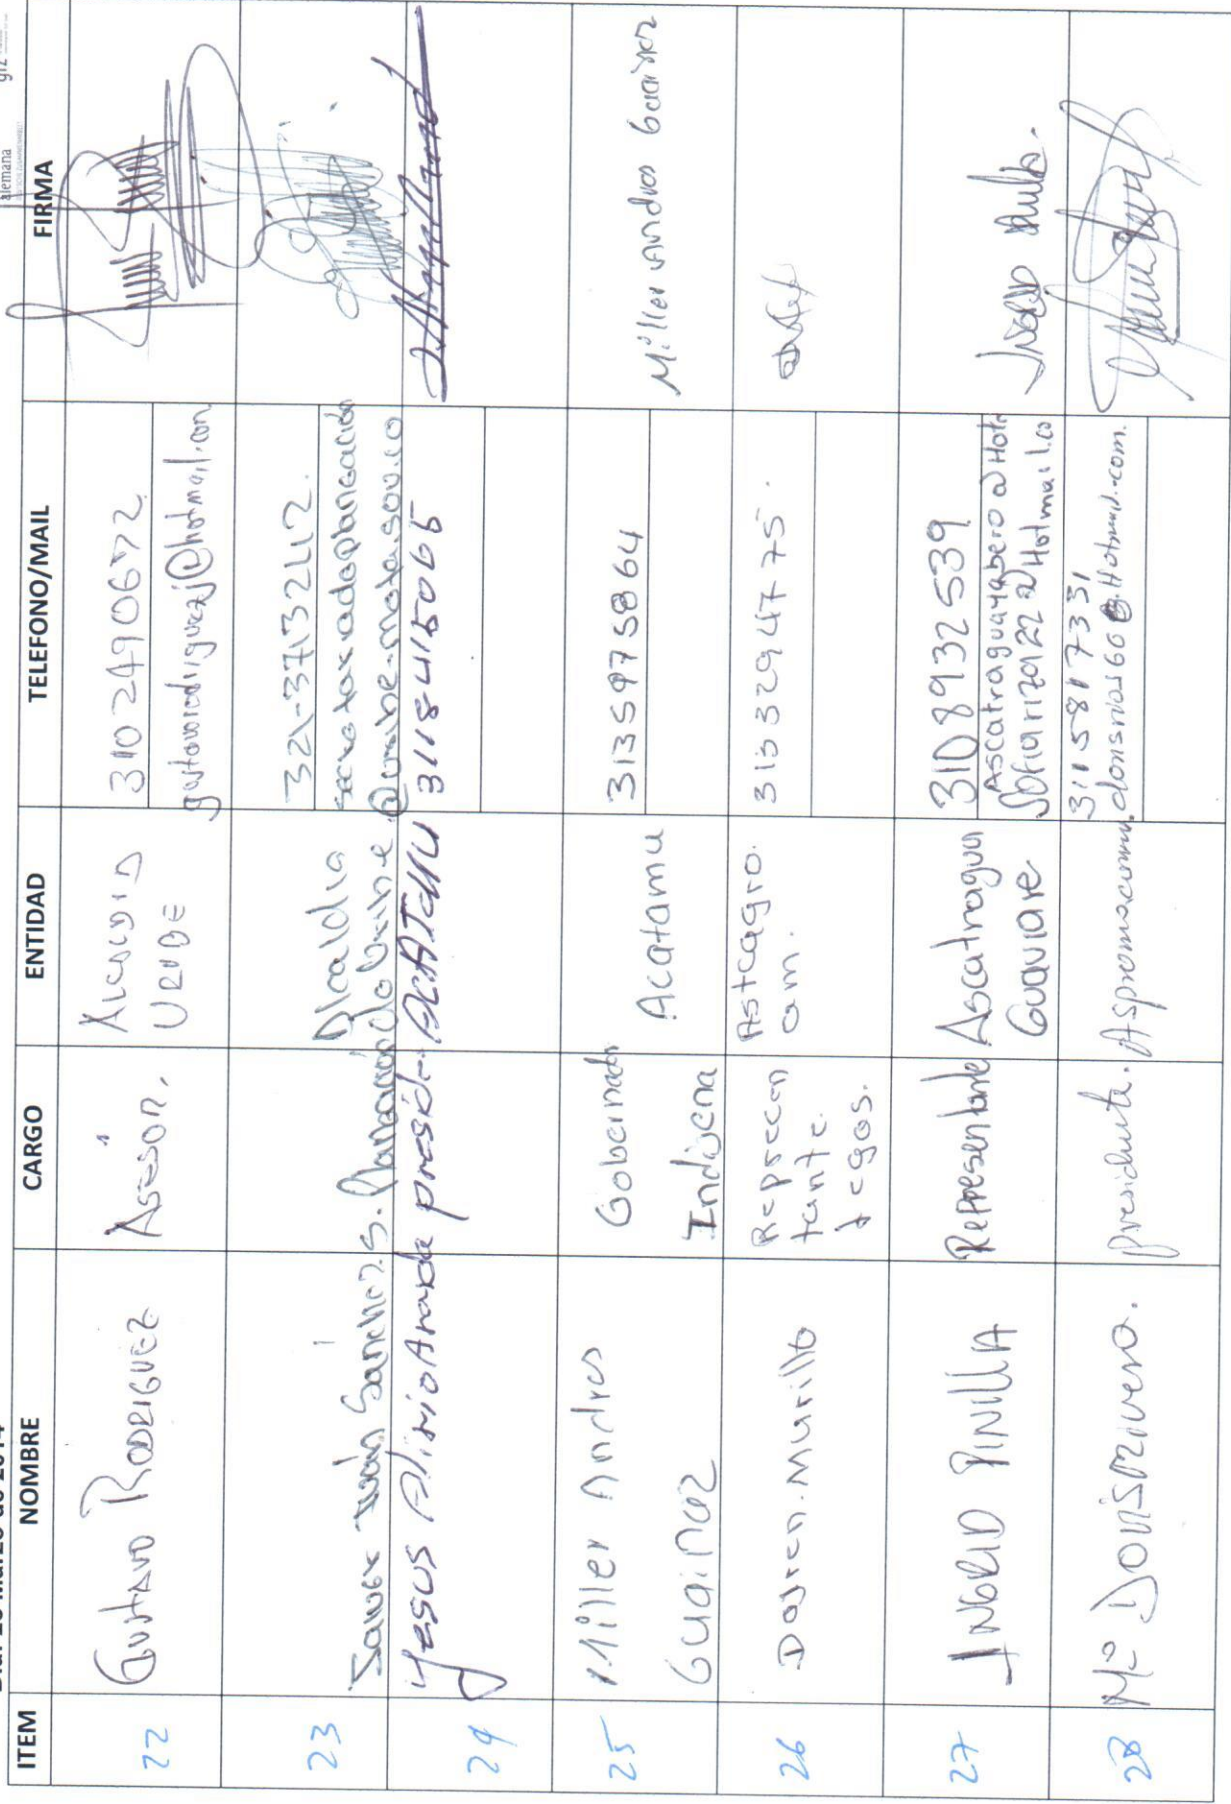 alemana
giz
ITEM NOMBRE CARGO ENTIDAD TELEFONO/MAIL FIRMA
22 GUSTAVO RODRIGUEZ ASESOR. ALCALDIA URIBE 3102490672
gustavorodriguezj@hotmail.com
23 Sanchez S. Planeación Alcaldia de Uribe 321-3732412
@uribe-meta.gov.co
24 Jesus Alirio Aranda preside. ACATAMU 3118415065
25 Miller Andres Guainaz Gobernador Indigena Acatamu 3135975864 Miller Andres Guainaz
26 Murillo Reprecen tante legas. Astcagro. am. 3133294775.
27 INGRID PINILLA Representante Ascatragua Guaviare 3108932539
Ascatraguayabero@Hotm
@Hotmail.co
28 Mª DORIS RIVERA. presidente. 3115817331
dorisrios66@.Hotmail.com.